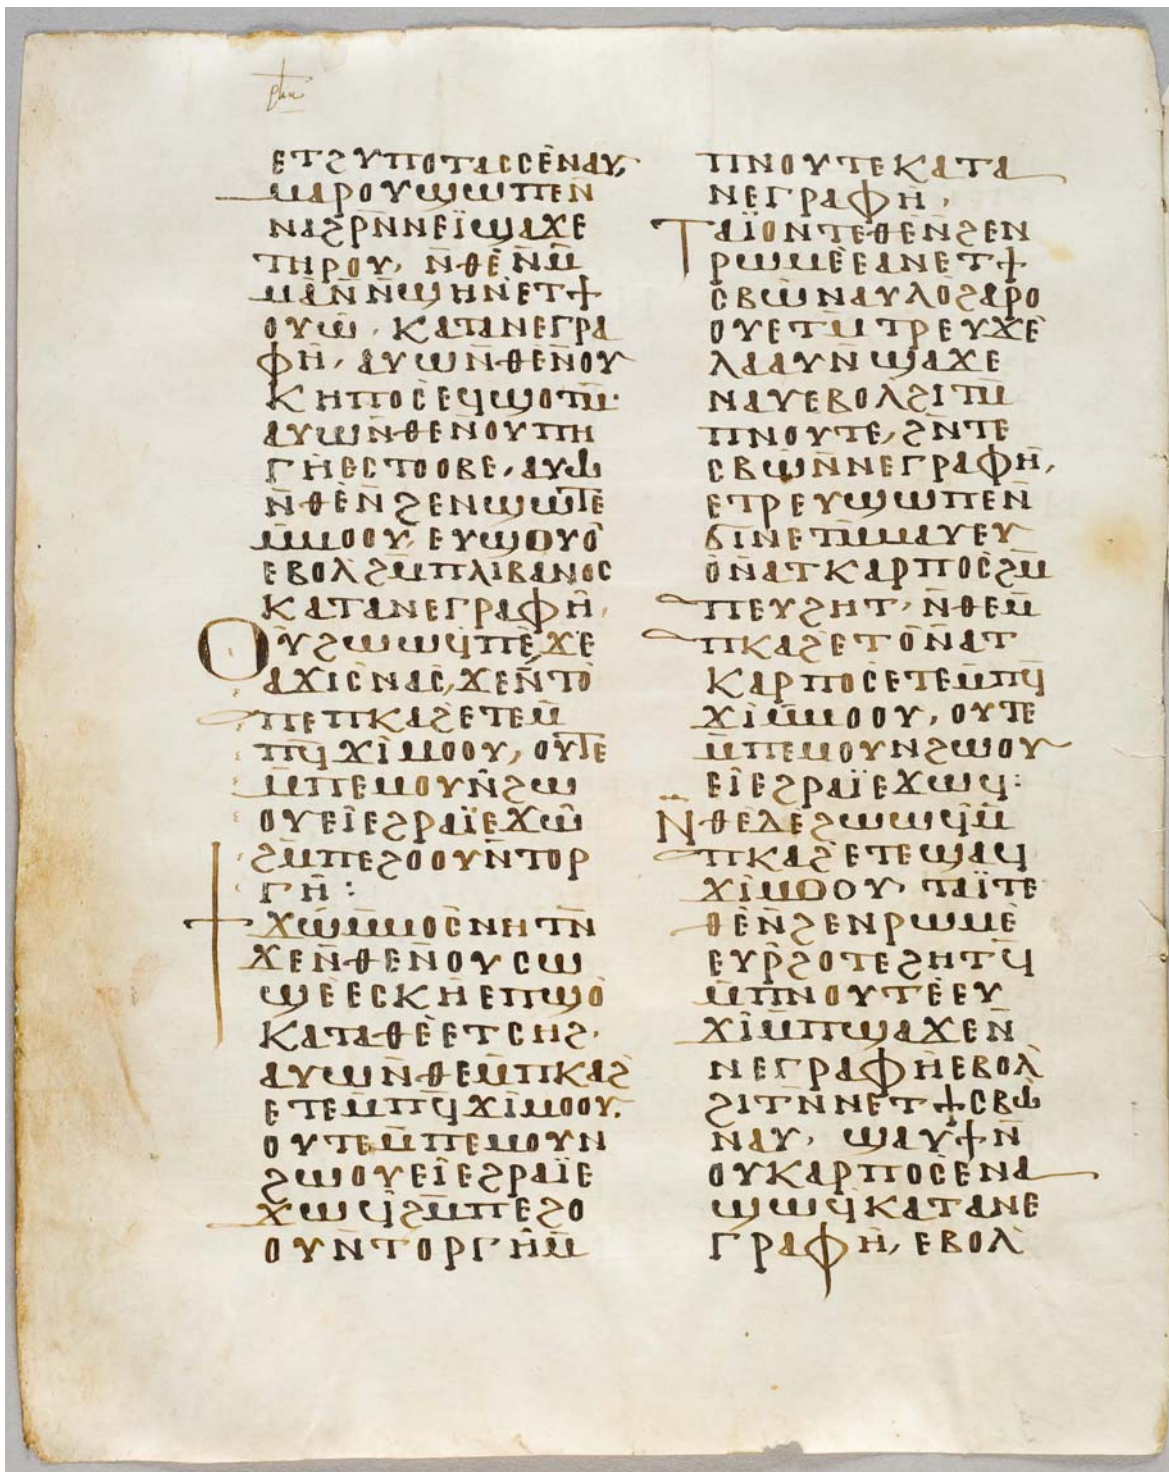 ⲉⲧϩⲩⲡⲟⲧⲁⲥⲥⲉ̀ⲛⲁⲩ,
ⲙⲁⲣⲟⲩϣⲱⲡⲉⲛ̄
ⲛⲁϩⲣⲛ̄ⲛⲉⲓ̈ϣⲁϫⲉ
ⲧⲏⲣⲟⲩ· ⲛ̄ⲑⲉ̀ⲛ̄ⲙ̄
ⲙⲁⲛ̄ⲛ̄ϣⲏⲛ̀ⲉⲧϯ
ⲟⲩⲱ̀· ⲕⲁⲧⲁⲛⲉⲅⲣⲁ
ⲫⲏ̀, ⲁⲩⲱⲛ̄ⲑⲉ̀ⲛ̄ⲟⲩ
ⲕⲏⲡⲟⲥ̀ⲉϥϣⲟⲧⲙ̄·
ⲁⲩⲱⲛ̄ⲑⲉⲛ̄ⲟⲩⲡⲏ
ⲅⲏ̀ⲉⲥⲧⲟⲟⲃⲉ, ⲁⲩⲱ̀
ⲛ̄ⲑⲉ̀ⲛ̄ϩⲉⲛϣⲱⲧⲉ̀
ⲙ̄ⲙⲟⲟⲩ, ⲉⲩϣⲟⲩⲟ̀
ⲉⲃⲟⲗ̀ϩⲙ̄ⲡⲗⲓⲃⲁⲛⲟⲥ
ⲕⲁⲧⲁⲛⲉⲅⲣⲁⲫⲏ̀,
ⲟⲩϩⲱⲱϥ̀ⲡⲉ̀ϫⲉ
ⲁϫⲓⲥ̀ⲛⲁⲥ̀, ϫⲉⲛ̄ⲧⲟ̀
ⲡⲉⲡⲕⲁϩ̀ⲉⲧⲉⲙ̄
ⲡϥ̄ϫⲓⲙⲟⲟⲩ, ⲟⲩⲧⲉ
ⲙ̄ⲡⲉⲙⲟⲩⲛ̄ϩⲱ
ⲟⲩⲉⲓ̀ⲉϩⲣⲁⲓ̈ⲉϫⲱ̀
ϩⲙ̄ⲡⲉϩⲟⲟⲩⲛ̄ⲧⲟⲣ
ⲅⲏ̀:
ϯϫⲱ̀ⲙ̄ⲙⲟⲥ̀ⲛⲏⲧⲛ̄
ϫⲉⲛ̄ⲑⲉⲛ̄ⲟⲩⲥⲱ
ϣⲉ̀ⲉⲥⲕⲏ̀ⲉⲡϣⲟ̀
ⲕⲁⲧⲁⲑⲉ̀ⲉⲧⲥⲏϩ·
ⲁⲩⲱⲛ̄ⲑⲉⲙ̄ⲡⲕⲁϩ̀
ⲉⲧⲉⲙ̄ⲡϥ̄ϫⲓⲙⲟⲟⲩ.
ⲟⲩⲧⲉⲙ̄ⲡⲉⲙⲟⲩⲛ
ϩⲱⲟⲩⲉⲓ̀ⲉϩⲣⲁⲓ̈ⲉ
ϫⲱϥ̀ϩⲙ̄ⲡⲉϩⲟ
ⲟⲩⲛ̄ⲧⲟⲣⲅⲏ̀ⲙ̄
ⲡⲛⲟⲩⲧⲉⲕⲁⲧⲁ
ⲛⲉⲅⲣⲁⲫⲏ̀,
ⲧⲁⲓ̈ⲟⲛⲧⲉⲑⲉ̀ⲛ̄ϩⲉⲛ
ⲣⲱⲙⲉ̀ⲉⲁⲛⲉⲧϯ
ⲥⲃⲱ̀ⲛⲁⲩⲗⲟ̀ϩⲁⲣⲟ
ⲟⲩⲉⲧⲙ̄ⲧⲣⲉⲩϫⲉ̀
ⲗⲁⲁⲩⲛ̄ϣⲁϫⲉ
ⲛⲁⲩⲉⲃⲟⲗ̀ϩⲓⲧⲙ̄
ⲡⲛⲟⲩⲧⲉ, ϩⲛ̄ⲧⲉ
ⲥⲃⲱ̀ⲛ̄ⲛⲉⲅⲣⲁⲫⲏ̀,
ⲉⲧⲣⲉⲩϣⲱⲡⲉⲛ̄
ϭⲓⲛⲉⲧⲙ̄ⲙⲁⲩⲉⲩ
ⲟ̀ⲛ̄ⲁⲧⲕⲁⲣⲡⲟⲥ̀ϩⲙ̄
ⲡⲉⲩϩⲏⲧ· ⲛ̄ⲑⲉⲙ̄
ⲡⲕⲁϩ̀ⲉⲧⲟ̀ⲛ̄ⲁⲧ
ⲕⲁⲣⲡⲟⲥ̀ⲉⲧⲉⲙ̄ⲡϥ̄
ϫⲓⲙ̄ⲙⲟⲟⲩ, ⲟⲩⲧⲉ
ⲙ̄ⲡⲉⲙⲟⲩⲛϩⲱⲟⲩ
ⲉⲓ̀ⲉϩⲣⲁⲓ̈ⲉϫⲱϥ:
ⲛ̄ⲑⲉⲇⲉ̀ϩⲱⲱϥ̀ⲙ̄
ⲡⲕⲁϩ̀ⲉⲧⲉϣⲁϥ
ϫⲓⲙⲟⲟⲩ· ⲧⲁⲓ̈ⲧⲉ
ⲑⲉ̀ⲛ̄ϩⲉⲛⲣⲱⲙⲉ̀
ⲉⲩⲣ̄ϩⲟⲧⲉϩⲏⲧϥ̄
ⲙ̄ⲡⲛⲟⲩⲧⲉ̀ⲉⲩ
ϫⲓⲙ̄ⲡϣⲁϫⲉⲛ̄
ⲛⲉⲅⲣⲁⲫⲏ̀ⲉⲃⲟⲗ̀
ϩⲓⲧⲛ̄ⲛⲉⲧϯⲥⲃⲱ̀
ⲛⲁⲩ· ϣⲁⲩϯⲛ̄
ⲟⲩⲕⲁⲣⲡⲟⲥ̀ⲉⲛⲁ
ϣⲱϥ̀ⲕⲁⲧⲁⲛⲉ
ⲅⲣⲁⲫⲏ̀, ⲉⲃⲟⲗ̀